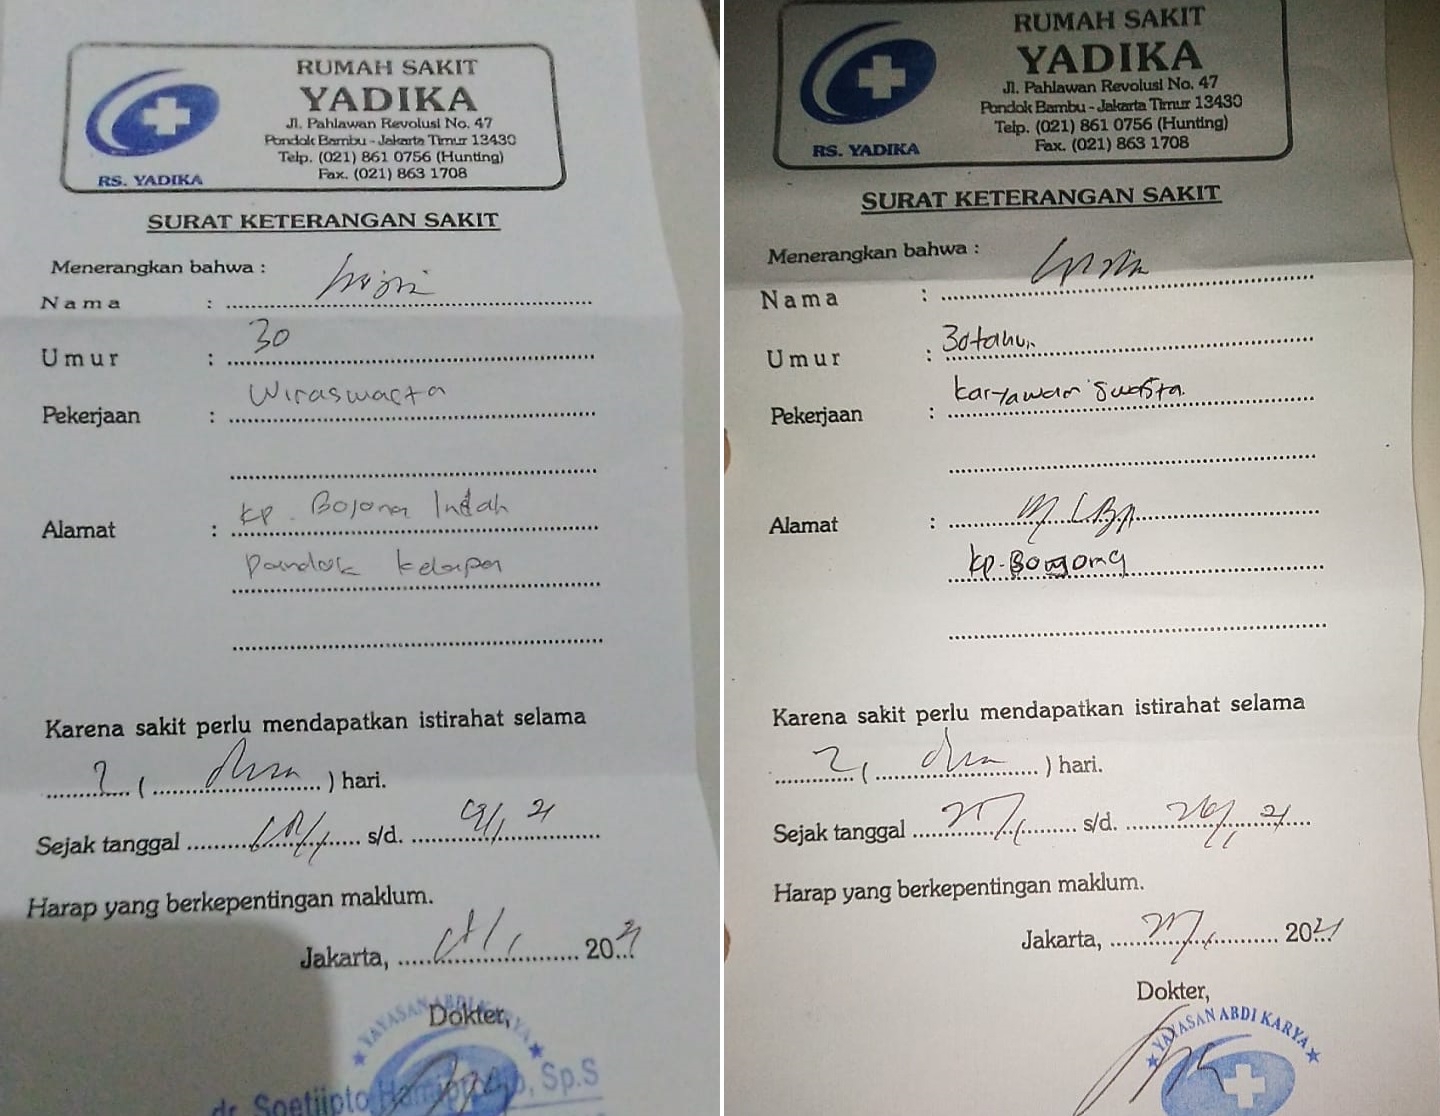 RUMAH SAKIT
YADIKA
Jl. Pahlawan Revolusi No. 47
Pondok Bambu - Jakarta Timur 13430
Telp. (021) 861 0756 (Hunting)
Fax. (021) 863 1708
RS. YADIKA
SURAT KETERANGAN SAKIT
Menerangkan bahwa :
Nama :
Umur : 30
Pekerjaan : Wiraswasta
Alamat : kp. Bojong Indah
Pondok kelapa
Karena sakit perlu mendapatkan istirahat selama
2 ( dua ) hari.
Sejak tanggal s/d. 21
Harap yang berkepentingan maklum.
Jakarta, 2021
Dokter,
YAYASAN ABDI KARYA
Sp.S
RUMAH SAKIT
YADIKA
Jl. Pahlawan Revolusi No. 47
Pondok Bambu - Jakarta Timur 13430
Telp. (021) 861 0756 (Hunting)
Fax. (021) 863 1708
RS. YADIKA
SURAT KETERANGAN SAKIT
Menerangkan bahwa :
Nama :
Umur : 30 tahun
Pekerjaan : karyawan swasta
Alamat :
kp. Bojong
Karena sakit perlu mendapatkan istirahat selama
2 ( dua ) hari.
Sejak tanggal s/d. 21
Harap yang berkepentingan maklum.
Jakarta, 2021
Dokter,
YAYASAN ABDI KARYA